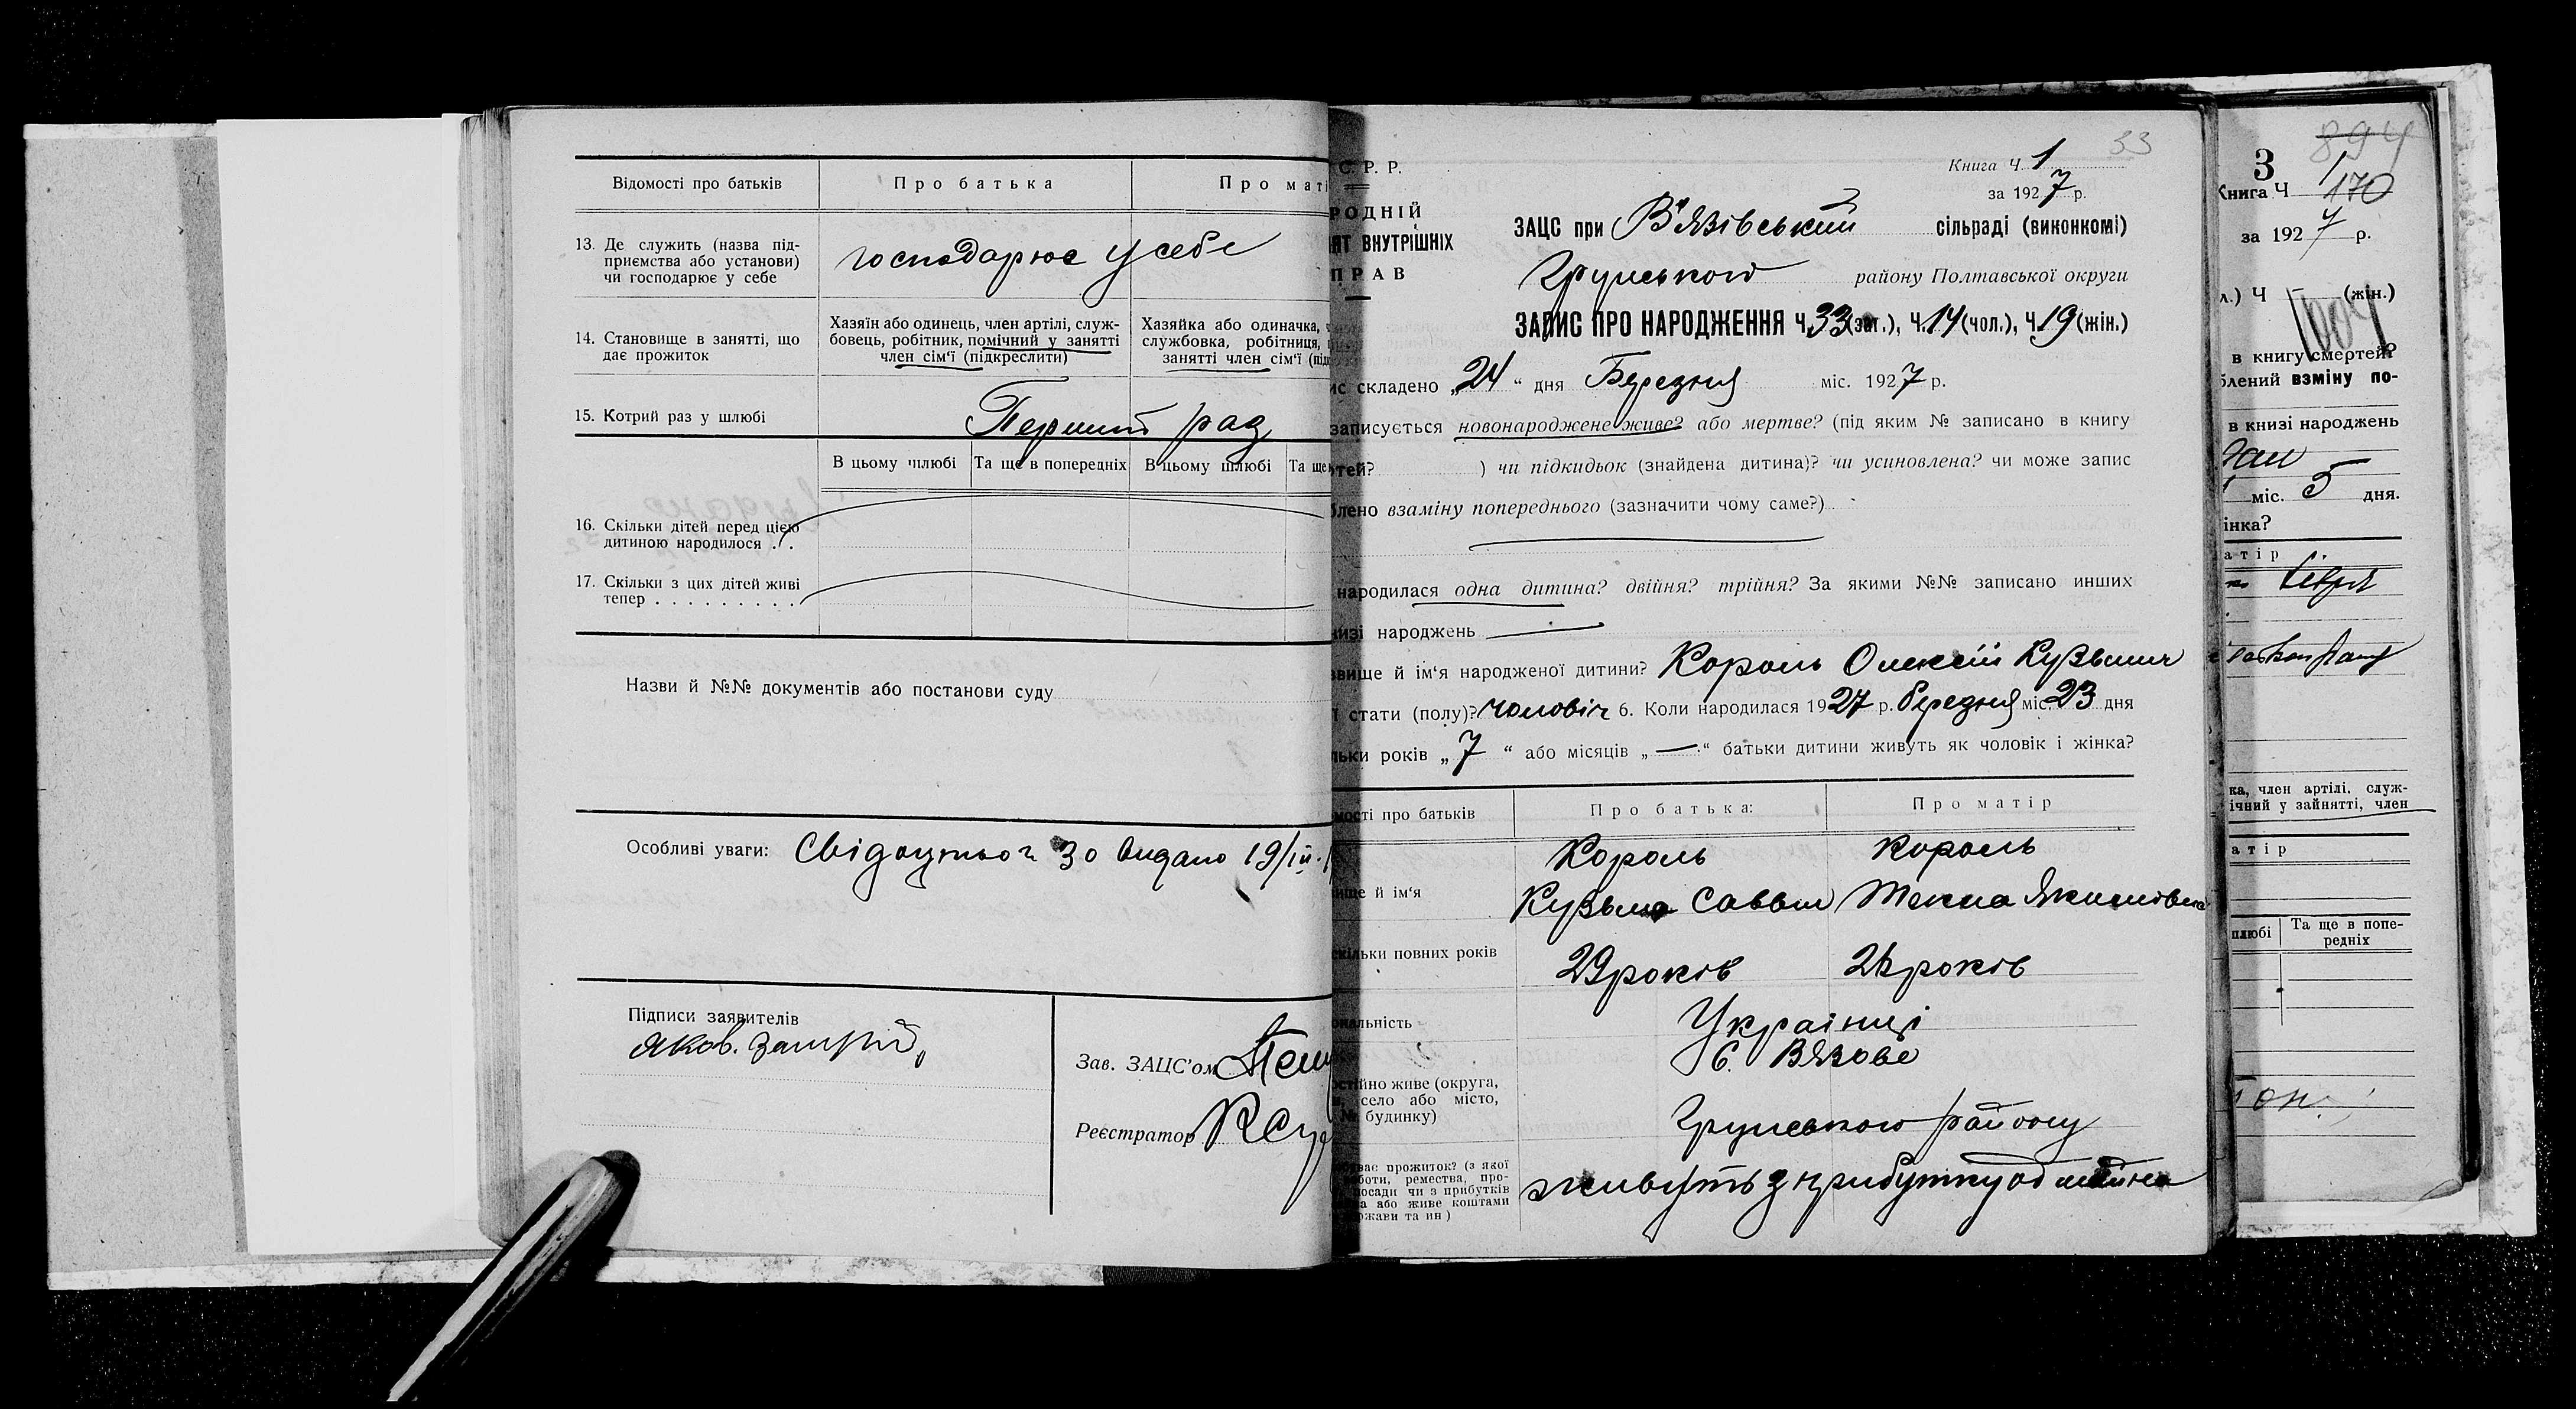 Відомості про батьків
Про батька
Про маті
13. Де служить (назва під-
приємства або установи)
чи господарює у себе
господарює у себе
14. Становище в занятті, що
дає прожиток
Хазяїн або одинець, член артілі, служ-
бовець, робітник, помічний у занятті
член сім'ї (підкреслити)
Хазяйка або одиначка,
службовка, робітниця,
занятті член сім'ї (під
15. Котрий раз у шлюбі
Перший раз
В цьому шлюбі
Та ще в попередніх
В цьому шлюбі
Та ще
16. Скільки дітей перед цією
дитиною народилося . .
17. Скільки з цих дітей живі
тепер . . . . . . . . .
Назви й №№ документів або постанови суду
Особливі уваги:
30 видано 19/III.
Підписи заявителів
Яков.
Зав. ЗАЦС'ом
Реєстратор
33
С. Р. Р.
РОДНІЙ
ЯТ ВНУТРІШНІХ
ПРАВ
Книга Ч 1
за 1927 р.
ЗАЦС при В'язівський сільраді (виконкомі)
Грунського району Полтавської округи
ЗАПИС ПРО НАРОДЖЕННЯ Ч. 33 (заг.), Ч. 14 (чол.), Ч. 19 (жін.)
ис складено „24“ дня Березня міс. 1927 р.
записується новонароджене живе? або мертве? (під яким № записано в книгу
ртей? ) чи підкидьок (знайдена дитина)? чи усиновлена? чи може запис
блено взаміну попереднього (зазначити чому саме?)
народилася одна дитина? двійня? трійня? За якими №№ записано инших
низі народжень —
звище й ім'я народженої дитини? Король Олексій Кузьмич
ї стати (полу)? чоловіч 6. Коли народилася 1927 р. березня міс. 23 дня
льки років „7“ або місяців „—“ батьки дитини живуть як чоловік і жінка?
мості про батьків
Про батька:
Про матір
вище й ім'я
Король
Кузьма Саввич
Король
Текла Якимовна
скільки повних років
29 років
років
ональність
Українці
остійно живе (округа,
н, село або місто,
№ будинку)
с. Вязове
Грунського району
буває прожиток? (з якої
боти, ремества, про-
посади чи з прибутків
а або живе коштами
ржави та ин)
живуть з прибутку од майна
894
3
Книга Ч 1
170
за 1927 р.
л.) Ч (жін.)
в книгу смертей?
блений взміну по-
в книзі народжень
міс. 5 дня.
інка?
атір
ка, член артілі, служ-
ічний у зайнятті, член
атір
шлюбі
Та ще в попе-
редніх